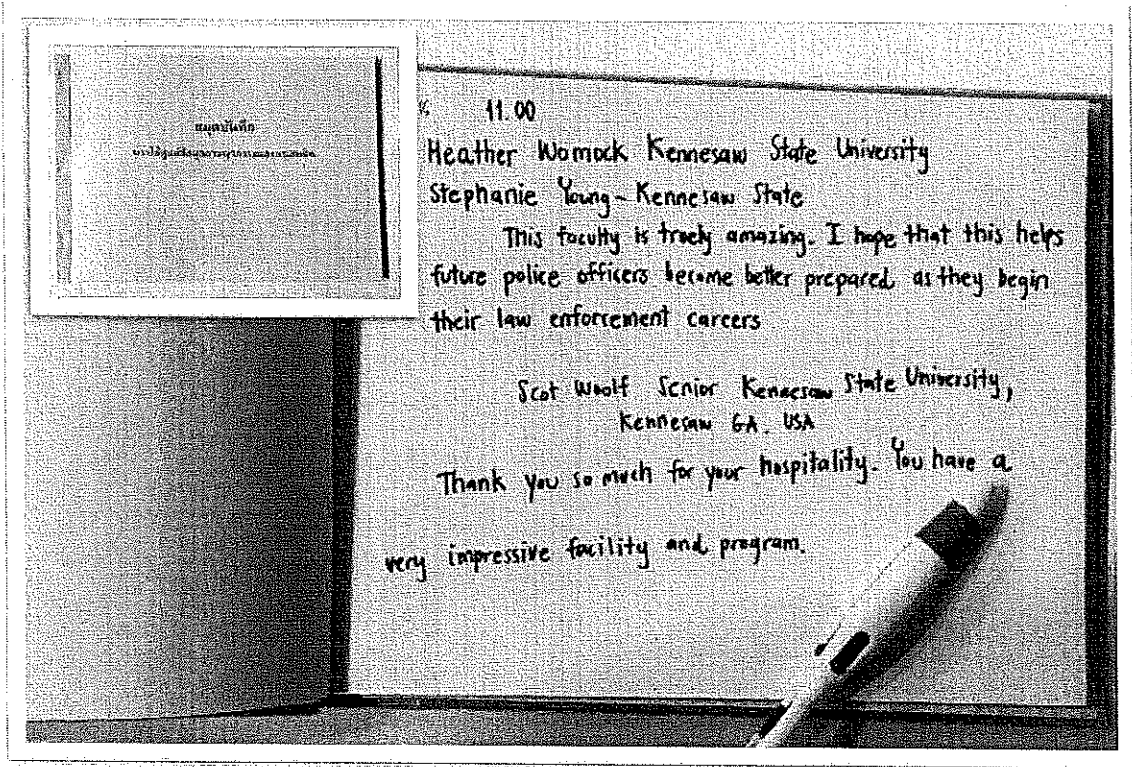 สมุดบันทึก
11.00
Heather Womock Kennesaw State University
Stephanie Young - Kennesaw State
This faculty is truely amazing. I hope that this helps
future police officers become better prepared as they begin
their law enforcement careers
Scot Woolf Senior Kennesaw State University,
Kennesaw GA. USA
Thank you so much for your hospitality. You have a
very impressive facility and program.